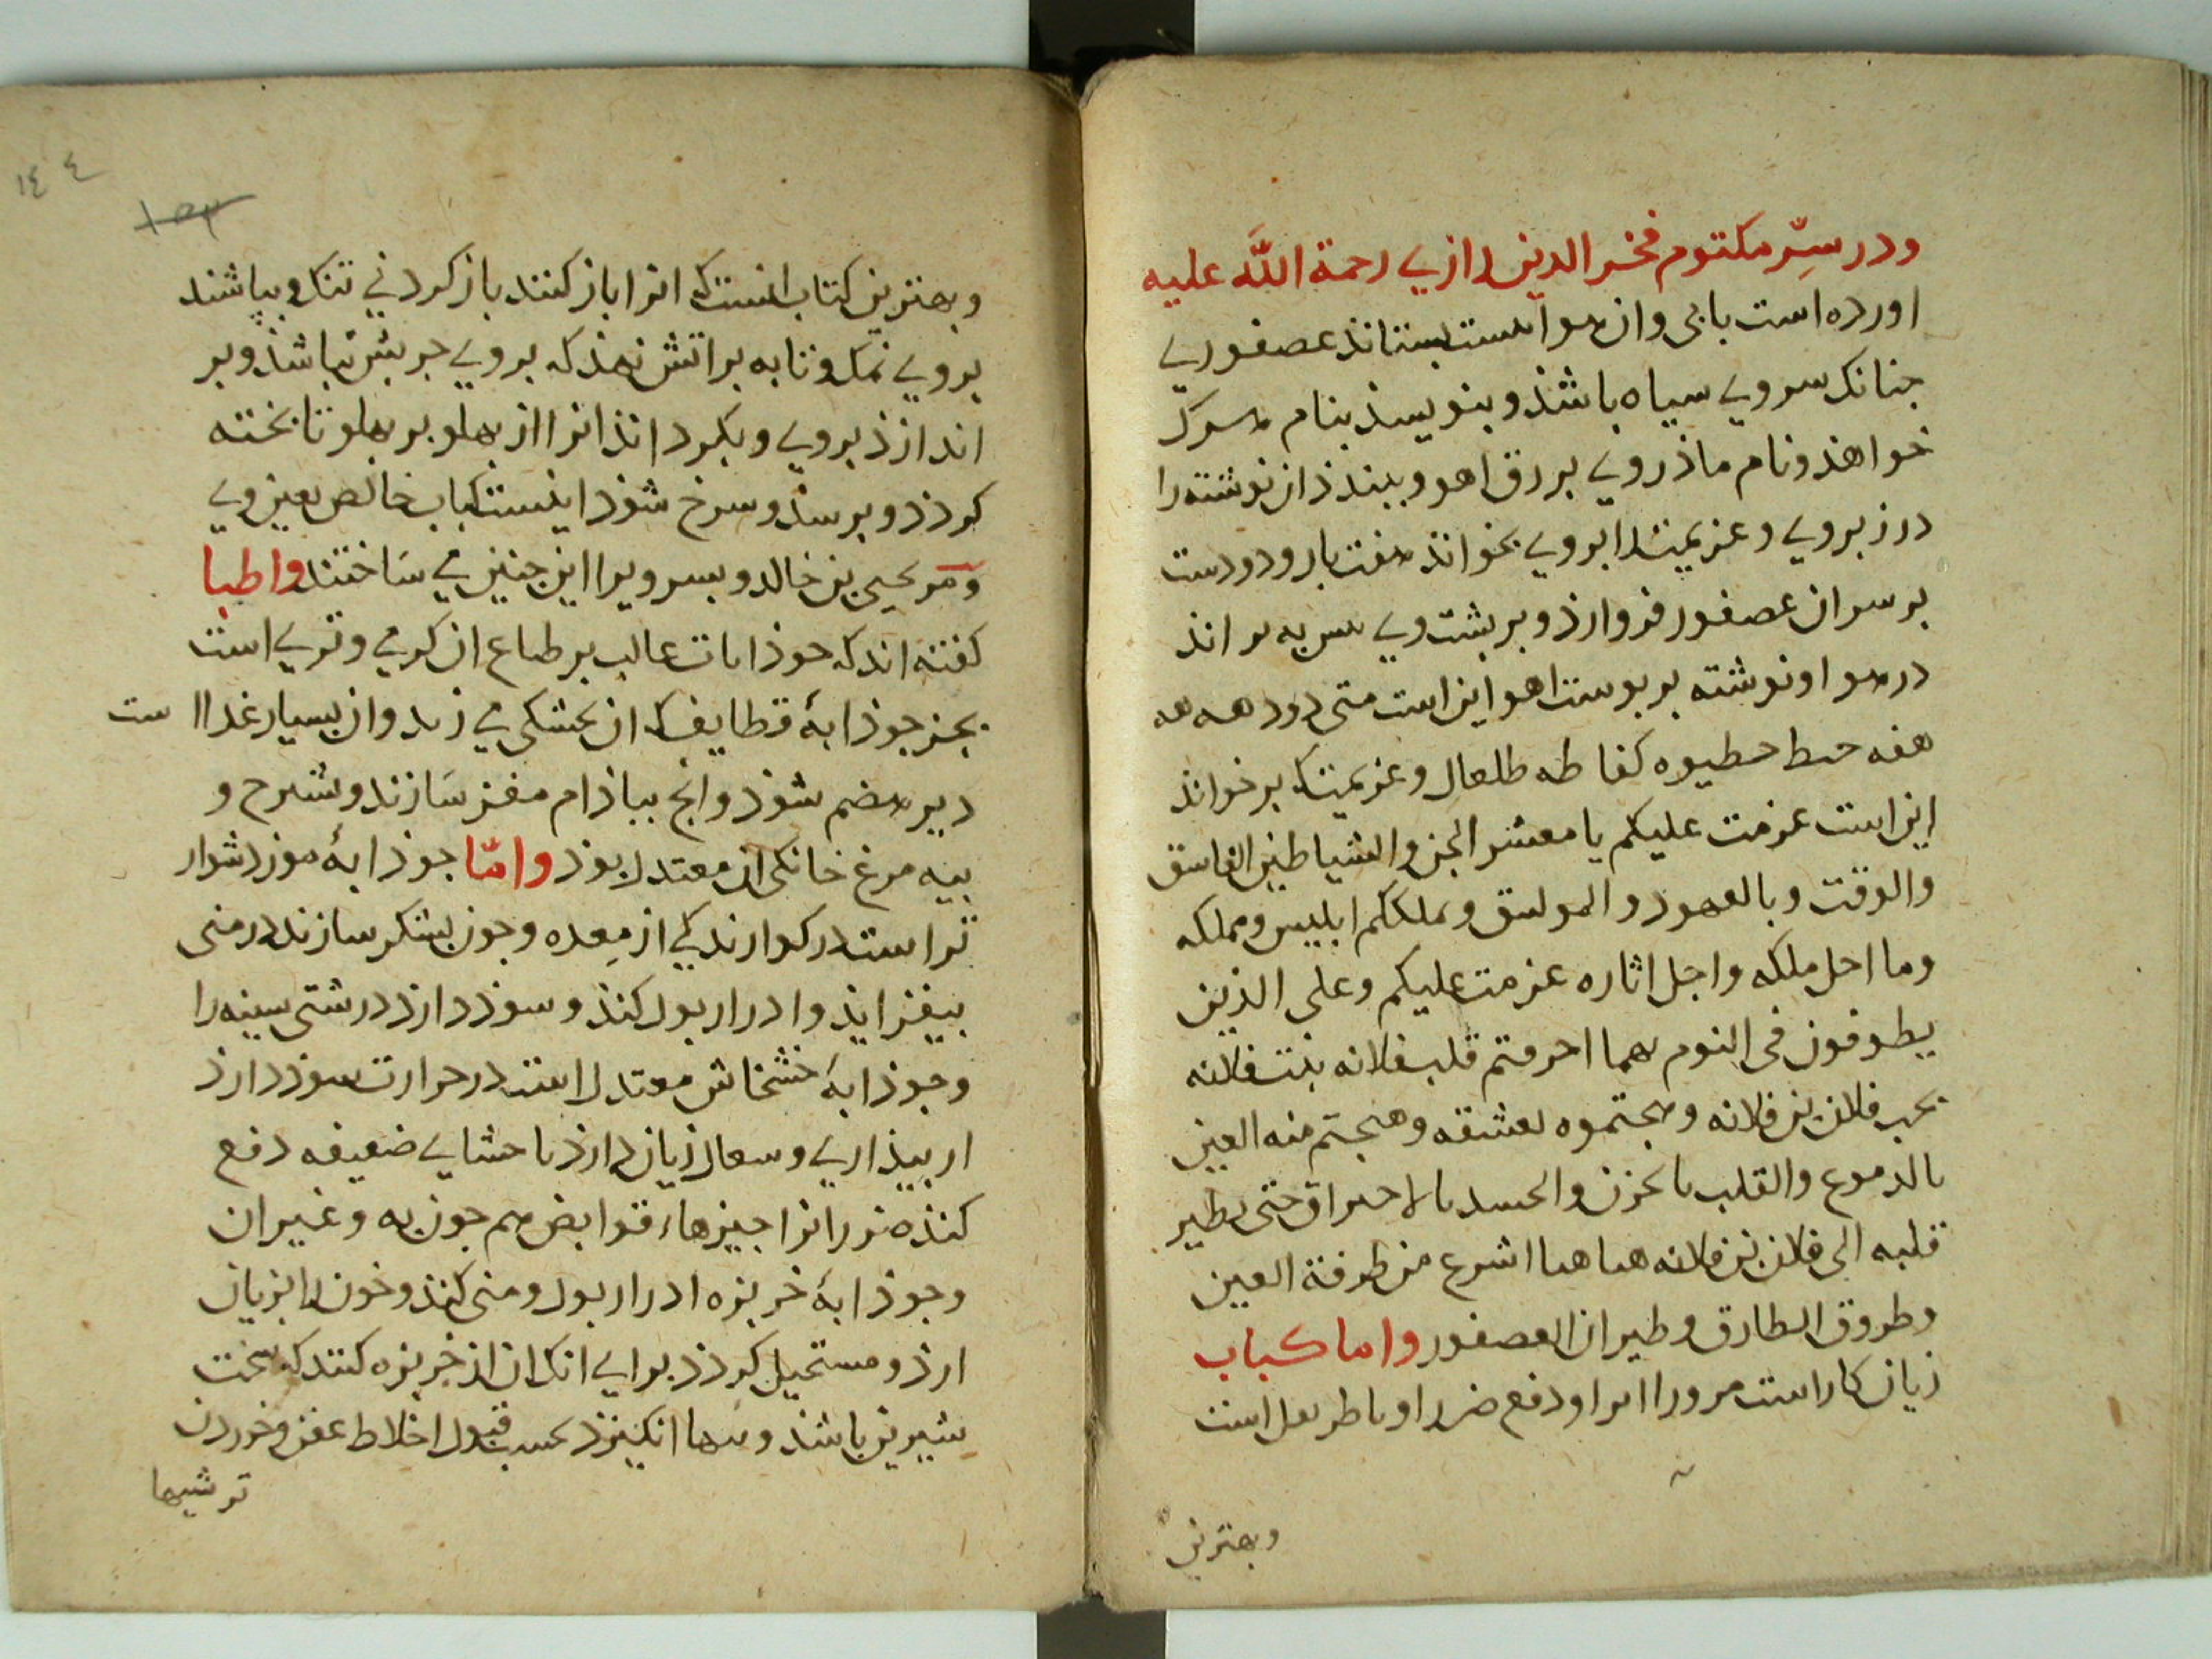 ودر سِرّ مكتوم فخر الدين رازي رحمة اللّه عليه
اورده است بابى وان هوا است بستاند عصفوري
جنانك سروي سياه باشذ و بنويسذ بنام هرك
خواهذ ونام ماذروي بر رق اهو و ببندذ ان نوشته را
درزبروي و عزيمت را بروي بخواند هفت بار ودودست
برسران عصفور فروارذ و بر بشت وي بر اند
در هوا و نوشته بر بوست اهو اين است متى دود هه هه
هفه حط حطيوه كفا طه طلعال وعزيمت ك برخواند
اين است عزمت عليكم يا معشر الجن والشياطين الفاسق
والوقت وبالعهود و المواثيق وبملككم ابليس ومملكه
وما احل ملكه واجل اثاره عزمت عليكم وعلى الذين
يطوفون فى النوم بهما احرقتم قلب فلانه بنت فلانه
بحب فلان بن فلانه وهيجتموه بعشقه وهيجتم منه العين
بالدموع والقلب بالحزن والجسد بالاحتراق حتى يطير
قلبه الى فلان بن فلانه هيا هيا اسرع من طرفة العين
وطروق الطارق وطيران العصفور واما كباب
زيان كار است مرورا ودفع ضرر او باطريفل است
وبهترين
١٤٤
وبهترين كتاب انست ك انرا باز كنند باز كردني تنك و بپاشند
بروي نمك و تابه براتش نهند كه بروي جربش نباشذ و بر
اندازذ بروي و بكرداند انرا از بهلو بر بهلو تا بخته
كردذ و برسذ و سرخ شوذ اينست كباب خالص بعين وي
و مر يحيى بن خالد و بسر ويرا اين جنين مي ساختند واطبا
كفته اند كه جوذابات غالب بر طباع ان كرمي وتري است
بجز جوذابۀ قطايف ك ان بخشكى مي زند وان بسيار غذا است
دير هضم شوذ وانج ببادام مغز سازند و شيرج و
بيه مرغ خانكى ان معتدل بوذ وامّا جوذابۀ موز دشوار
تر است در كوارندكي از معده وجون بشكر سازند در منى
بيفزايذ و ادرار بول كند و سوذ دارذ درشتى سينه را
وجوذابۀ خشخاش معتدل است در حرارت سوذ دارذ
از بيذاري وسعال زيان دارذ باحشاي ضعيفه دفع
كنذه ضرر انرا جيزهاء قوابض هم جون به و غير ان
و جوذابۀ خربزه ادرار بول و منى كند و خون را بزيان
ارذ و مستحيل كردذ براي انك ان از خربزه كنند كه سخت
شيرين باشد و تبها انكيزد بحسب قبول اخلاط عفن و خوردن
ترشيها